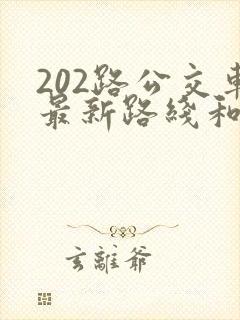 202路公交車
最新路綫和
玄離爺